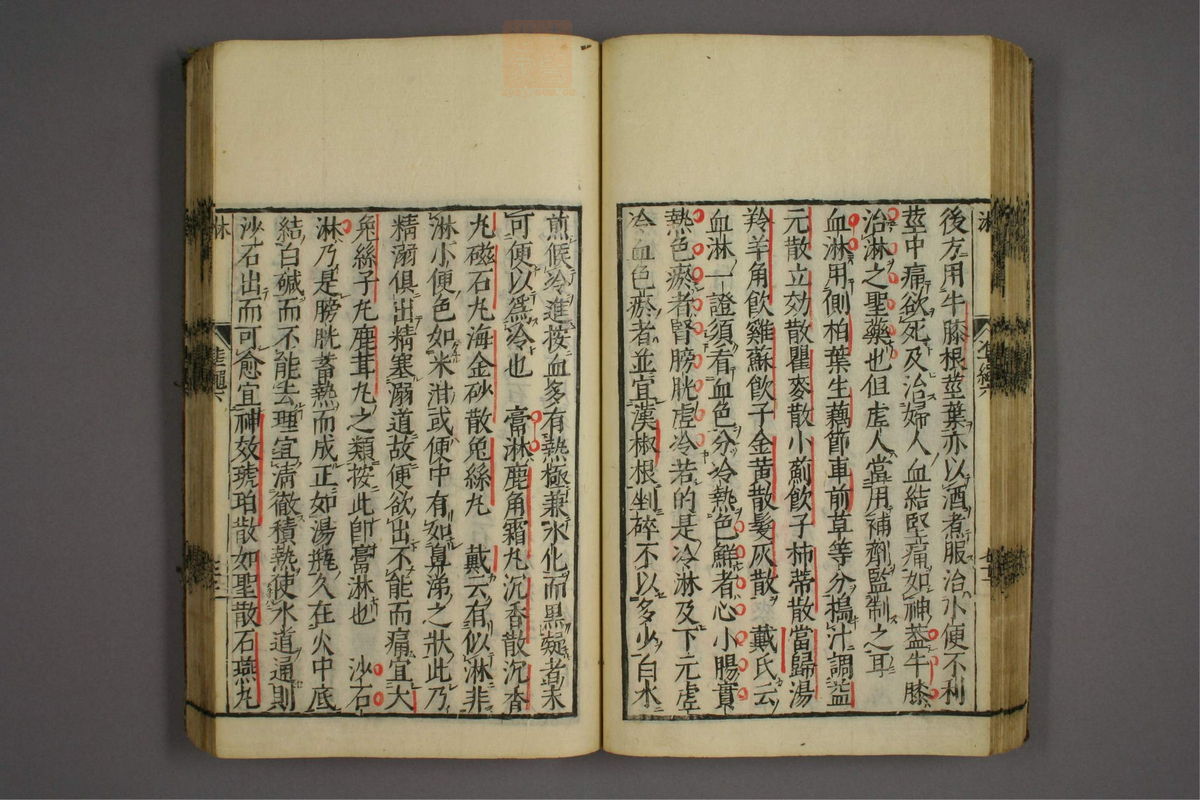 後方用牛膝根莖葉亦以酒煮服治小便不利
莖中痛欲死及治婦人血結堅痛如神蓋牛膝
治淋之聖藥也但虛人當用補劑監制之耳
血淋用側柏葉生藕節車前草等分搗汁調益
元散立効散瞿麥散小薊飲子柿蒂散當歸湯
羚羊角飲雞蘇飲子金黃散髮灰散　戴氏云
血淋一證須看血色分冷熱色鮮者心小腸實
熱色瘀者腎膀胱虛冷若的是冷淋及下元虛
冷血色瘀者並宜漢椒根剉碎不以多少白水
煎候冷進按血多有熱極兼水化而黑凝者未
可便以爲冷也　膏淋鹿角霜丸沉香散沉香
丸磁石丸海金砂散兔絲丸　戴云有似淋非
淋小便色如米泔或便中有如鼻涕之狀此乃
精溺俱出精塞溺道故便欲出不能而痛宜大
兔絲子丸鹿茸丸之類按此卽膏淋也　沙石
淋乃是膀胱蓄熱而成正如湯瓶久在火中底
結白碱而不能去理宜清徹積熱使水道通則
沙石出而可愈宜神效琥珀散如聖散石燕丸
淋